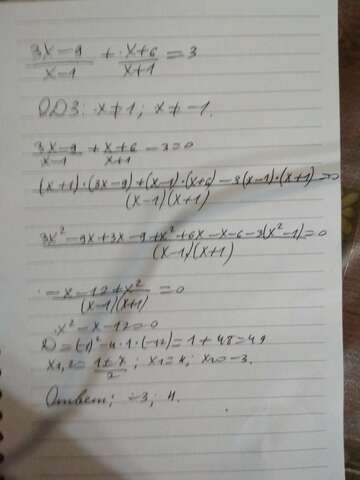 (3x-9)/(x-1) + (x+6)/(x+1) = 3
ОДЗ: x≠1; x≠-1.
(3x-9)/(x-1) + (x+6)/(x+1) - 3=0
((x+1)·(3x-9)+(x-1)·(x+6)-3(x-1)·(x+1))/((x-1)(x+1)) =0
(3x²-9x+3x-9+x²+6x-x-6-3(x²-1))/((x-1)(x+1)) =0
(-x-12+x²)/((x-1)(x+1)) =0
x²-x-12=0
D=(-1)²-4·1·(-12)=1+48=49
x1,2=(1±7)/2; x1=4; x2=-3.
Ответ: -3; 4.